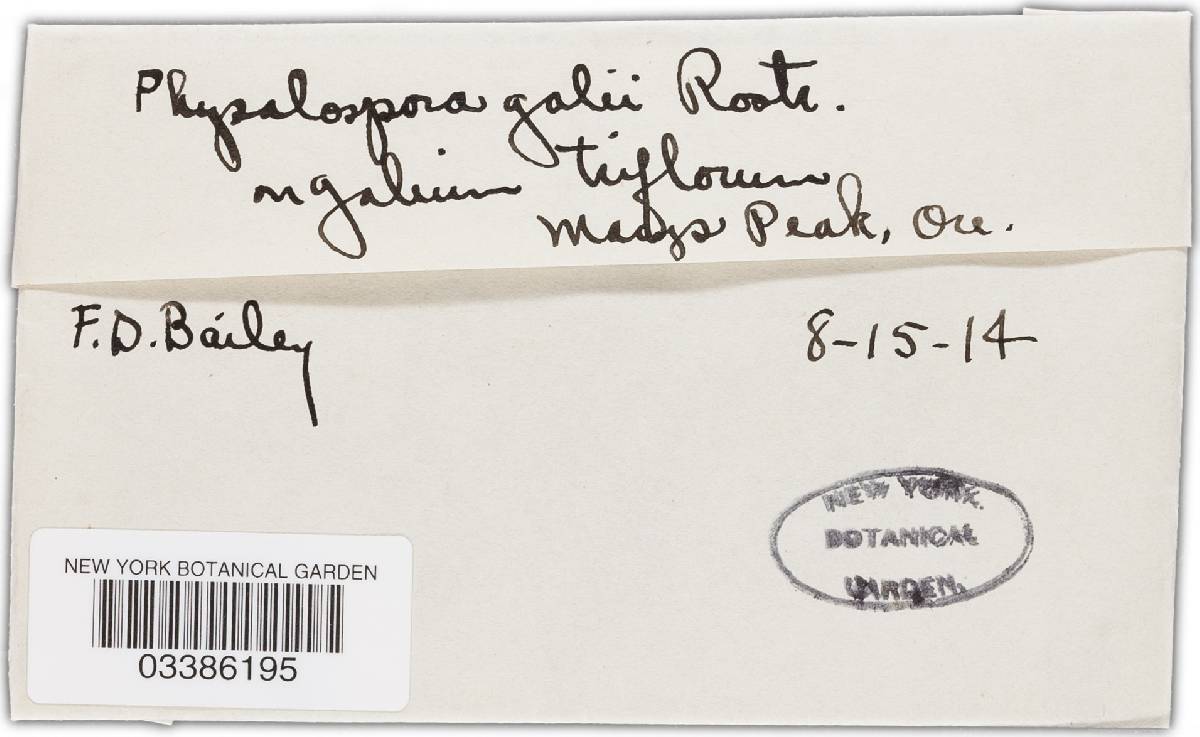 Physalospora galii Rostr.
on galium triflorum
Marys Peak, Ore.
F.D. Bailey
8-15-14
NEW YORK
BOTANICAL
GARDEN.
NEW YORK BOTANICAL GARDEN
03386195